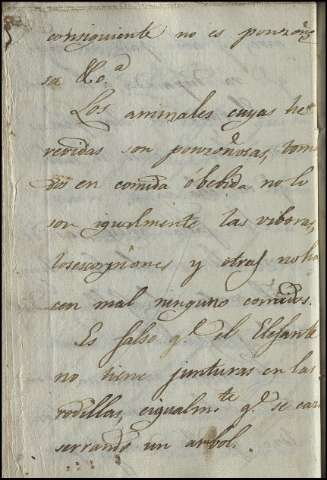 consiguiente no es ponzoño
sa &c.a
Los animales cuyas he
reridas son ponzoñosas, toma
dos en comida ó bebida no lo
son igualmente las viboras,
los escorpiones y otros no ha
cen mal ninguno comidos.
Es falso q.e el Elefante
no tiene junturas en las
rodillas, eigualm.te q.e se caze
serrando un arbol.